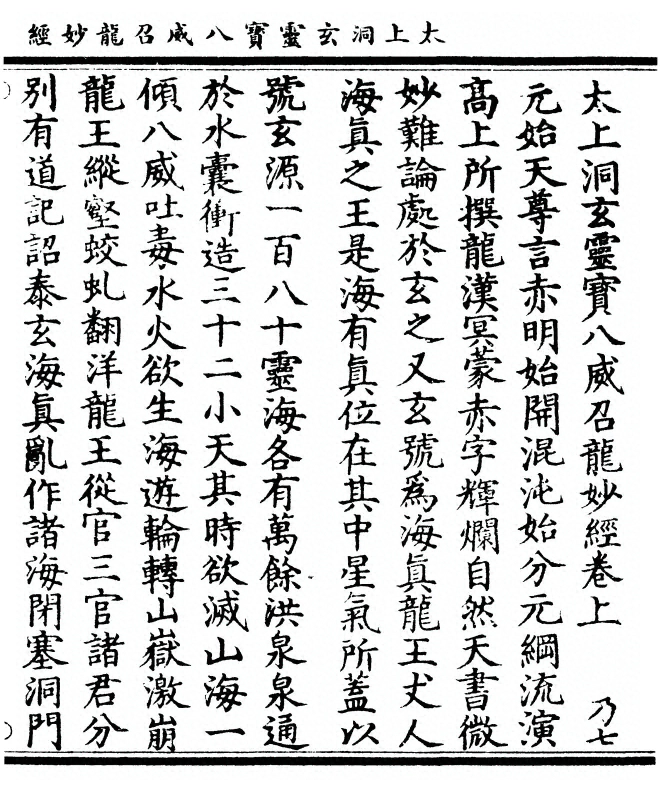 太上洞玄靈寶八威召龍妙經
太上洞玄靈寶八威召龍妙經卷上 乃七
元始天尊言赤明始開混沌始分元綱流演
高上所撰龍漢冥蒙赤字輝爛自然天書微
妙難論處於玄之又玄號爲海眞龍王丈人
海眞之王是海有眞位在其中星氣所蓋以
號玄源一百八十靈海各有萬餘洪泉泉通
於水囊衝造三十二小天其時欲滅山海一
傾八威吐毒水火欲生海遊輪轉山嶽激崩
龍王縱壑蛟虬翻洋龍王從官三官諸君分
別有道記詔泰玄海眞亂作諸海閉塞洞門